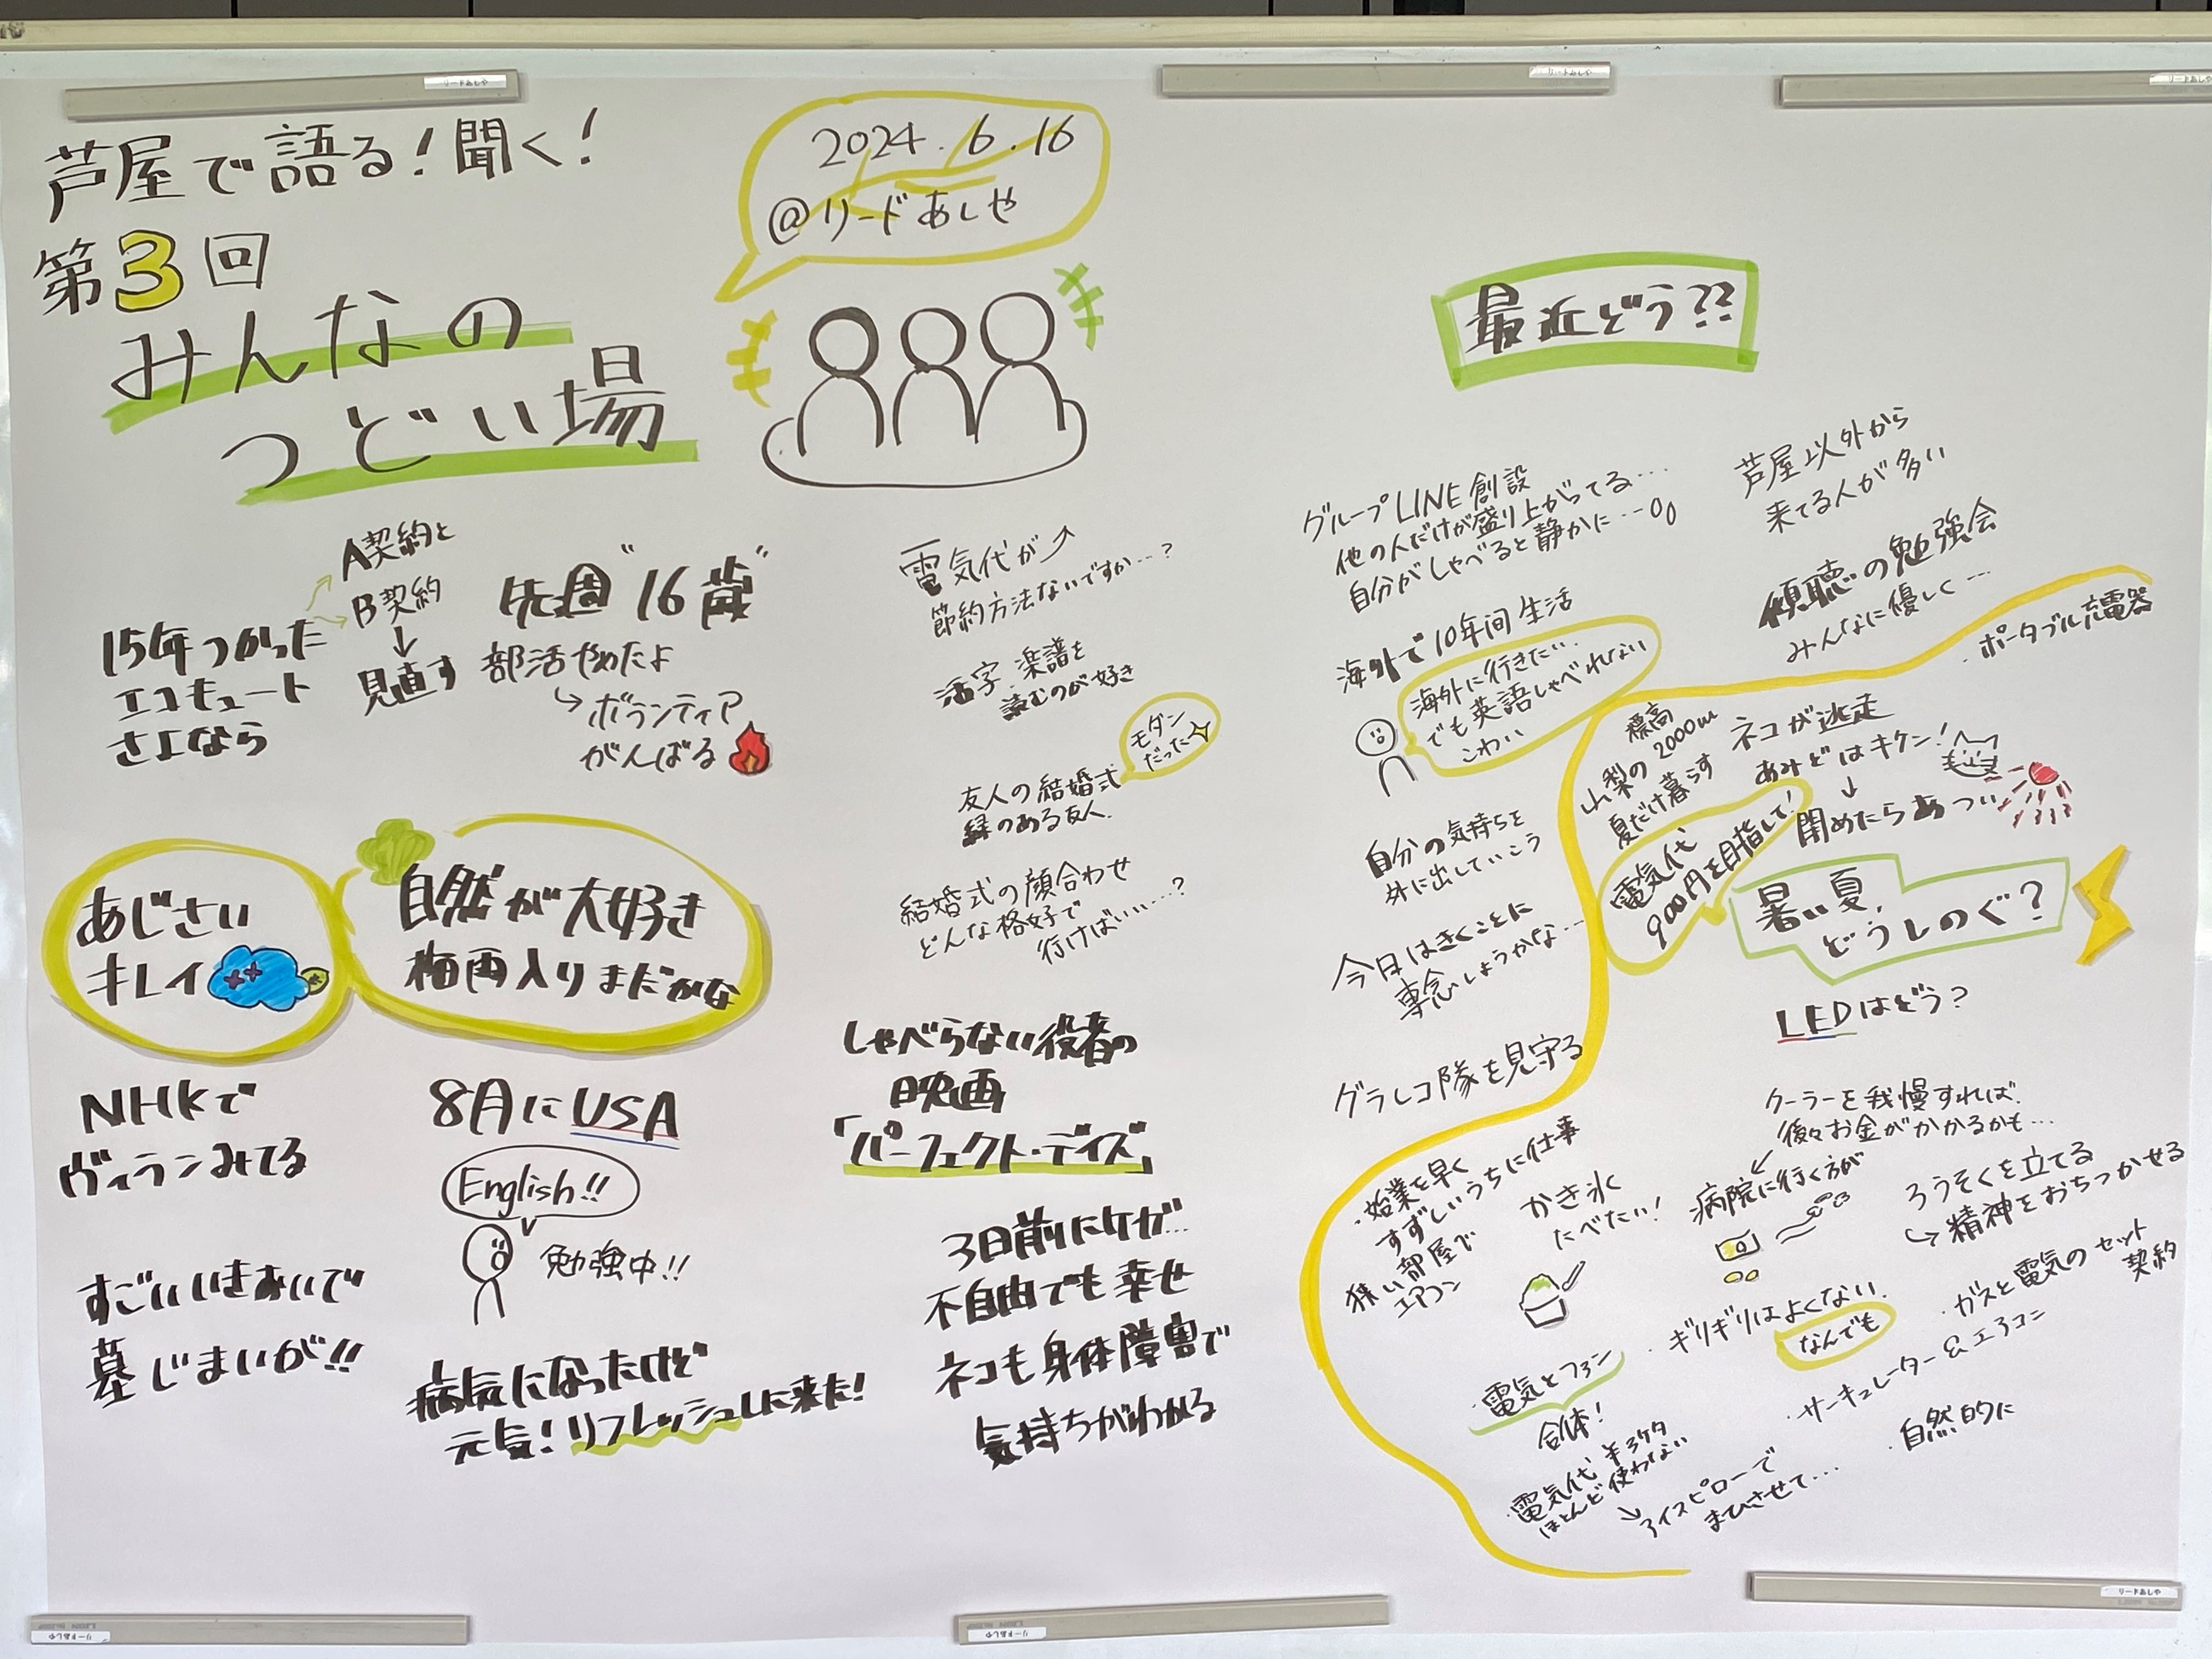 芦屋で語る!聞く!
第3回
みんなの
つどい場
2024.6.16
@リードあしや
最近どう??
15年つかった
エコキュート
さよなら
A契約と
B契約
↓
見直す
先週"16歳"
部活やめたよ
ボランティア
がんばる
あじさい
キレイ
自然が大好き
梅雨入りまだかな
NHKで
ヴィランみてる
8月にUSA
English!!
勉強中!!
すごいいきおいで
墓じまいが!!
病気になったけど
元気!リフレッシュしに来た!
電気代が↗
節約方法ないですか…?
活字、楽譜を
読むのが好き
モダン
だった
友人の結婚式
縁のある友人.
結婚式の顔合わせ
どんな格好で
行けばいい…?
しゃべらない役者の
映画
「パーフェクト・デイズ」
3日前にケガ…
不自由でも幸せ
ネコも身体障害で
気持ちがわかる
グループLINE創設
他の人だけが盛り上がってる…
自分がしゃべると静かに…
海外で10年間生活
海外に行きたい.
でも英語しゃべれない
こわい
自分の気持ちを
外に出していこう
今日はきくことに
専念しようかな…
グラレコ隊を見守る
芦屋以外から
来てる人が多い
傾聴の勉強会
みんなに優しく…
・ポータブル充電器
標高
山梨の2000m
夏だけ暮らす
ネコが逃走
あみどはキケン!
↓
閉めたらあつい
電気代
900円を目指して!
暑い夏、
どうしのぐ?
LEDはどう?
クーラーを我慢すれば、
後々お金がかかるかも…
病院に行く方が
・始業を早く
すずしいうちに仕事
狭い部屋で
エアコン
かき氷
たべたい!
ろうそくを立てる
精神をおちつかせる
・ガスと電気のセット
契約
・ギリギリはよくない.
なんでも
・サーキュレーター&エアコン
・自然的に
・電気とファン
合体!
・電気代¥3ケタ
ほとんど使わない
アイスピローで
まひさせて…
リードあしや
リードあしや
リードあしや
リードあしや
リードあしや
リードあしや